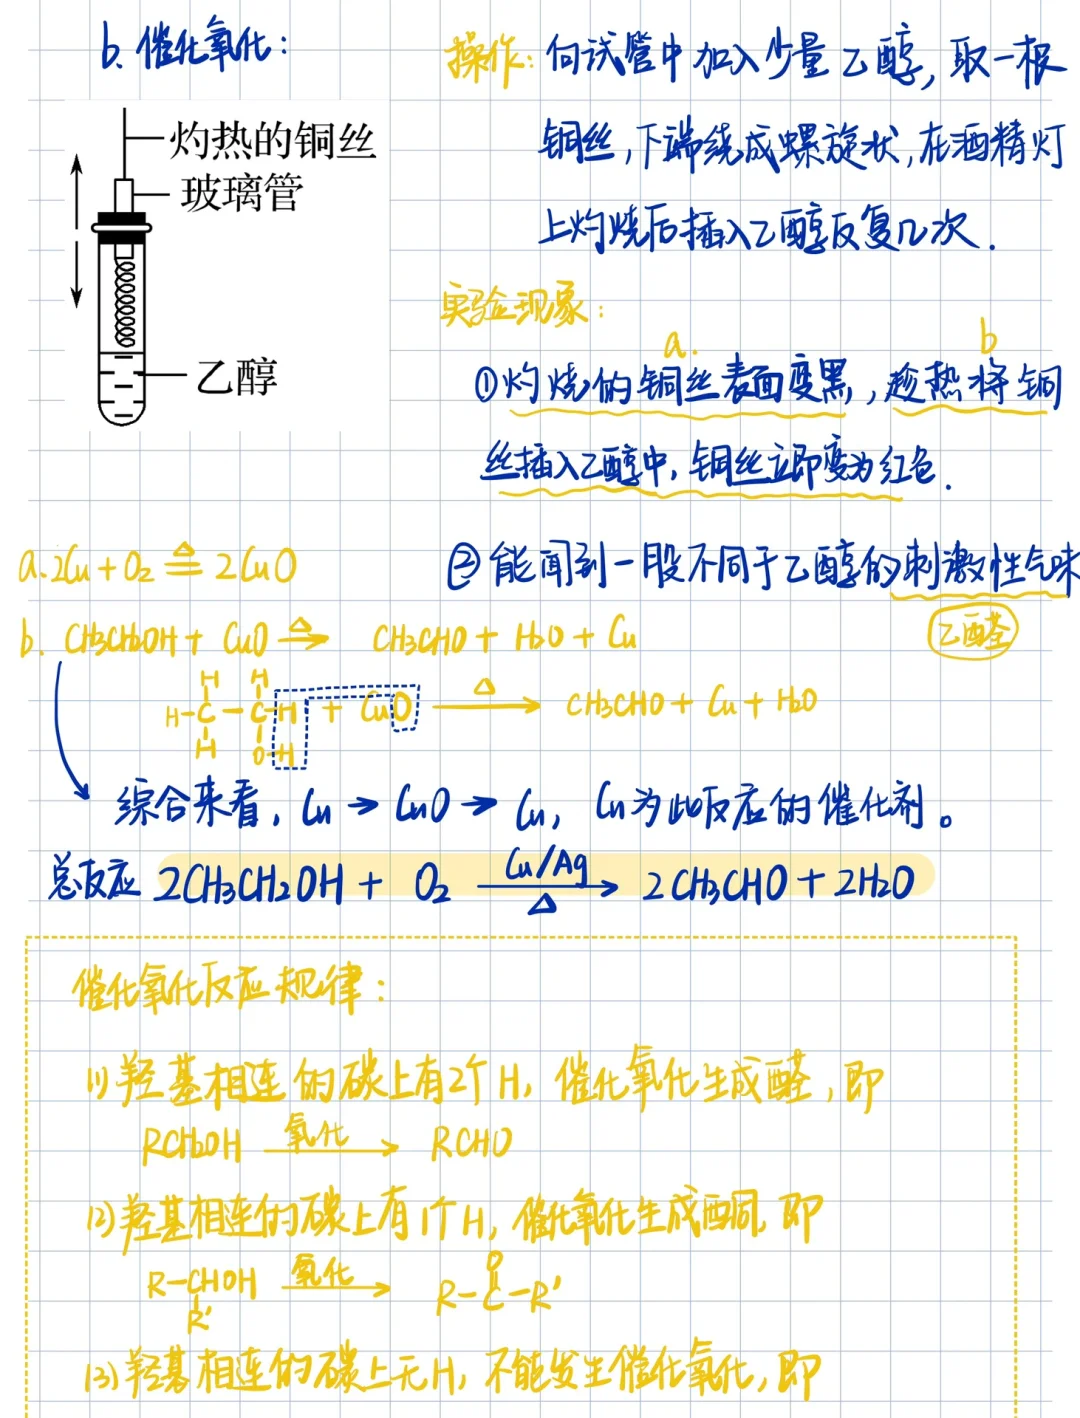 b. 催化氧化:
灼热的铜丝
玻璃管
乙醇
操作: 向试管中加入少量乙醇, 取一根
铜丝, 下端绕成螺旋状, 在酒精灯
上灼烧后插入乙醇反复几次.
实验现象:
a. b
①灼烧的铜丝表面变黑, 趁热将铜
丝插入乙醇中, 铜丝立即变为红色.
②能闻到一股不同于乙醇的刺激性气味
乙醛
a. 2Cu + O2 ≜ 2CuO
b. CH3CH2OH + CuO △→ CH3CHO + H2O + Cu
H H
H-C-C-H + CuO △→ CH3CHO + Cu + H2O
H O-H
综合来看, Cu → CuO → Cu, Cu为此反应的催化剂。
总反应 2CH3CH2OH + O2 Cu/Ag △→ 2CH3CHO + 2H2O
催化氧化反应规律:
(1)羟基相连的碳上有2个H, 催化氧化生成醛, 即
RCH2OH 氧化→ RCHO
(2)羟基相连的碳上有1个H, 催化氧化生成酮, 即
O
R-CHOH 氧化→ R-C-R'
R'
(3)羟基相连的碳上无H, 不能发生催化氧化, 即